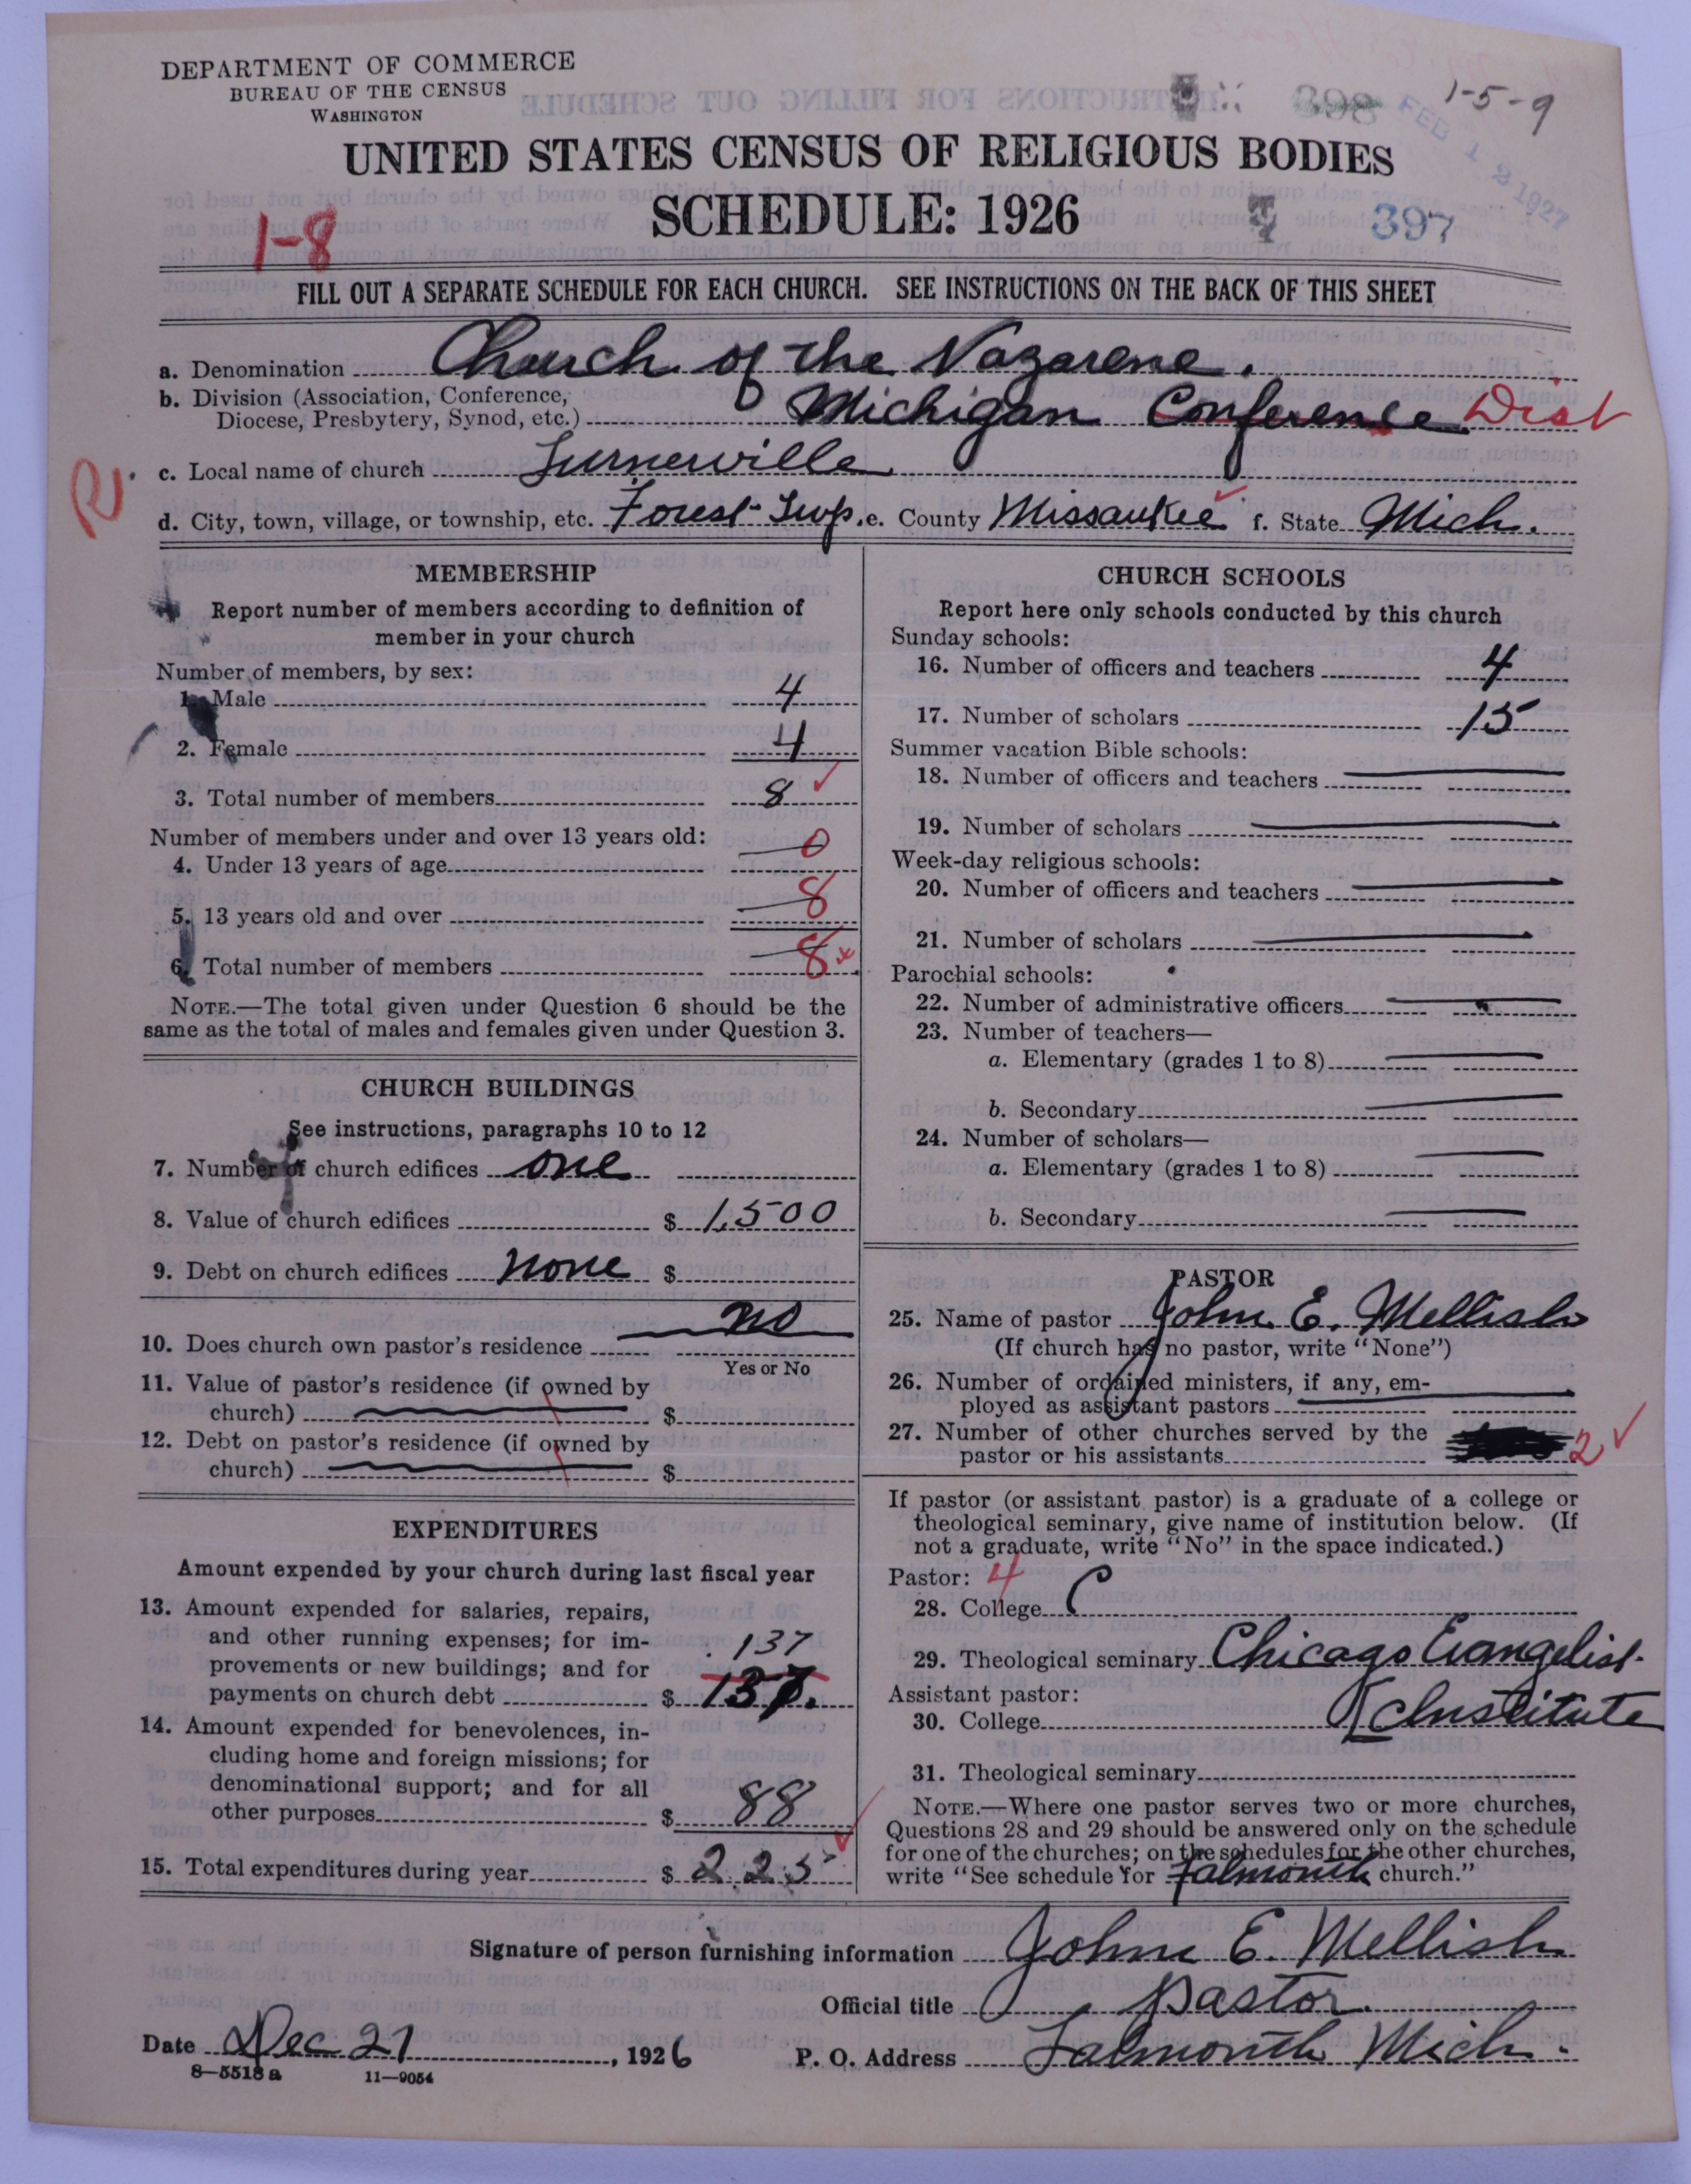 DEPARTMENT OF COMMERCE
BUREAU OF THE CENSUS
WASHINGTON
398
1-5-9
FEB 12 1927
UNITED STATES CENSUS OF RELIGIOUS BODIES
SCHEDULE: 1926
1-8
397
FILL OUT A SEPARATE SCHEDULE FOR EACH CHURCH. SEE INSTRUCTIONS ON THE BACK OF THIS SHEET
a. Denomination Church of the Nazarene.
b. Division (Association, Conference,
Diocese, Presbytery, Synod, etc.) Michigan Conference Dist
R.
c. Local name of church Turnerville
d. City, town, village, or township, etc. Forest Twp. e. County Missaukee f. State Mich.
MEMBERSHIP
Report number of members according to definition of
member in your church
Number of members, by sex:
1. Male 4
2. Female 4
3. Total number of members 8
Number of members under and over 13 years old:
4. Under 13 years of age 0
5. 13 years old and over 8
6. Total number of members 8 x
NOTE.—The total given under Question 6 should be the
same as the total of males and females given under Question 3.
CHURCH BUILDINGS
See instructions, paragraphs 10 to 12
7. Number of church edifices one
8. Value of church edifices $ 1,500
9. Debt on church edifices none $
10. Does church own pastor's residence no
Yes or No
11. Value of pastor's residence (if owned by
church) $
12. Debt on pastor's residence (if owned by
church) $
EXPENDITURES
Amount expended by your church during last fiscal year
13. Amount expended for salaries, repairs,
and other running expenses; for im-
provements or new buildings; and for
payments on church debt $ 137
137.
14. Amount expended for benevolences, in-
cluding home and foreign missions; for
denominational support; and for all
other purposes $ 88
15. Total expenditures during year $ 225
CHURCH SCHOOLS
Report here only schools conducted by this church
Sunday schools:
16. Number of officers and teachers 4
17. Number of scholars 15
Summer vacation Bible schools:
18. Number of officers and teachers
19. Number of scholars
Week-day religious schools:
20. Number of officers and teachers
21. Number of scholars
Parochial schools:
22. Number of administrative officers
23. Number of teachers—
a. Elementary (grades 1 to 8)
b. Secondary
24. Number of scholars—
a. Elementary (grades 1 to 8)
b. Secondary
PASTOR
25. Name of pastor John E. Mellish
(If church has no pastor, write "None")
26. Number of ordained ministers, if any, em-
ployed as assistant pastors
27. Number of other churches served by the
pastor or his assistants 2
If pastor (or assistant pastor) is a graduate of a college or
theological seminary, give name of institution below. (If
not a graduate, write "No" in the space indicated.)
Pastor: 4
28. College
29. Theological seminary Chicago Evangelist.
Institute
Assistant pastor:
30. College
31. Theological seminary
NOTE.—Where one pastor serves two or more churches,
Questions 28 and 29 should be answered only on the schedule
for one of the churches; on the schedules for the other churches,
write "See schedule for Falmouth church."
Signature of person furnishing information John E. Mellish
Official title Pastor
Date Dec 21, 1926
P. O. Address Falmouth Mich.
8—5518 a 11—9054